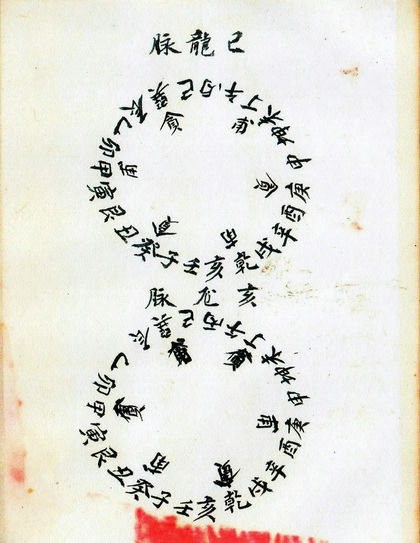 巳龍脉
壬子癸丑艮寅甲卯乙辰巽巳丙午丁未坤申庚酉辛戌乾亥
貪
亥龙脉
壬子癸丑艮寅甲卯乙辰巽巳丙午丁未坤申庚酉辛戌乾亥